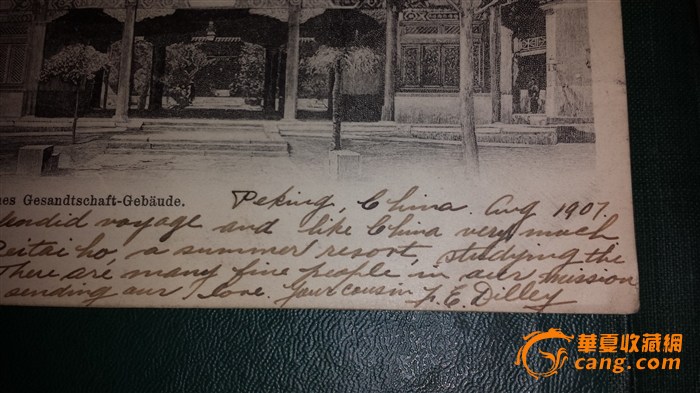 es Gesandtschaft-Gebäude.
Peking, China. Aug 1907.
splendid voyage and like China very much
Peitaiho, a summer resort, studying the
There are many fine people in our mission
sending our love. Your cousin F. E. Dilley
華夏收藏網
cang.com